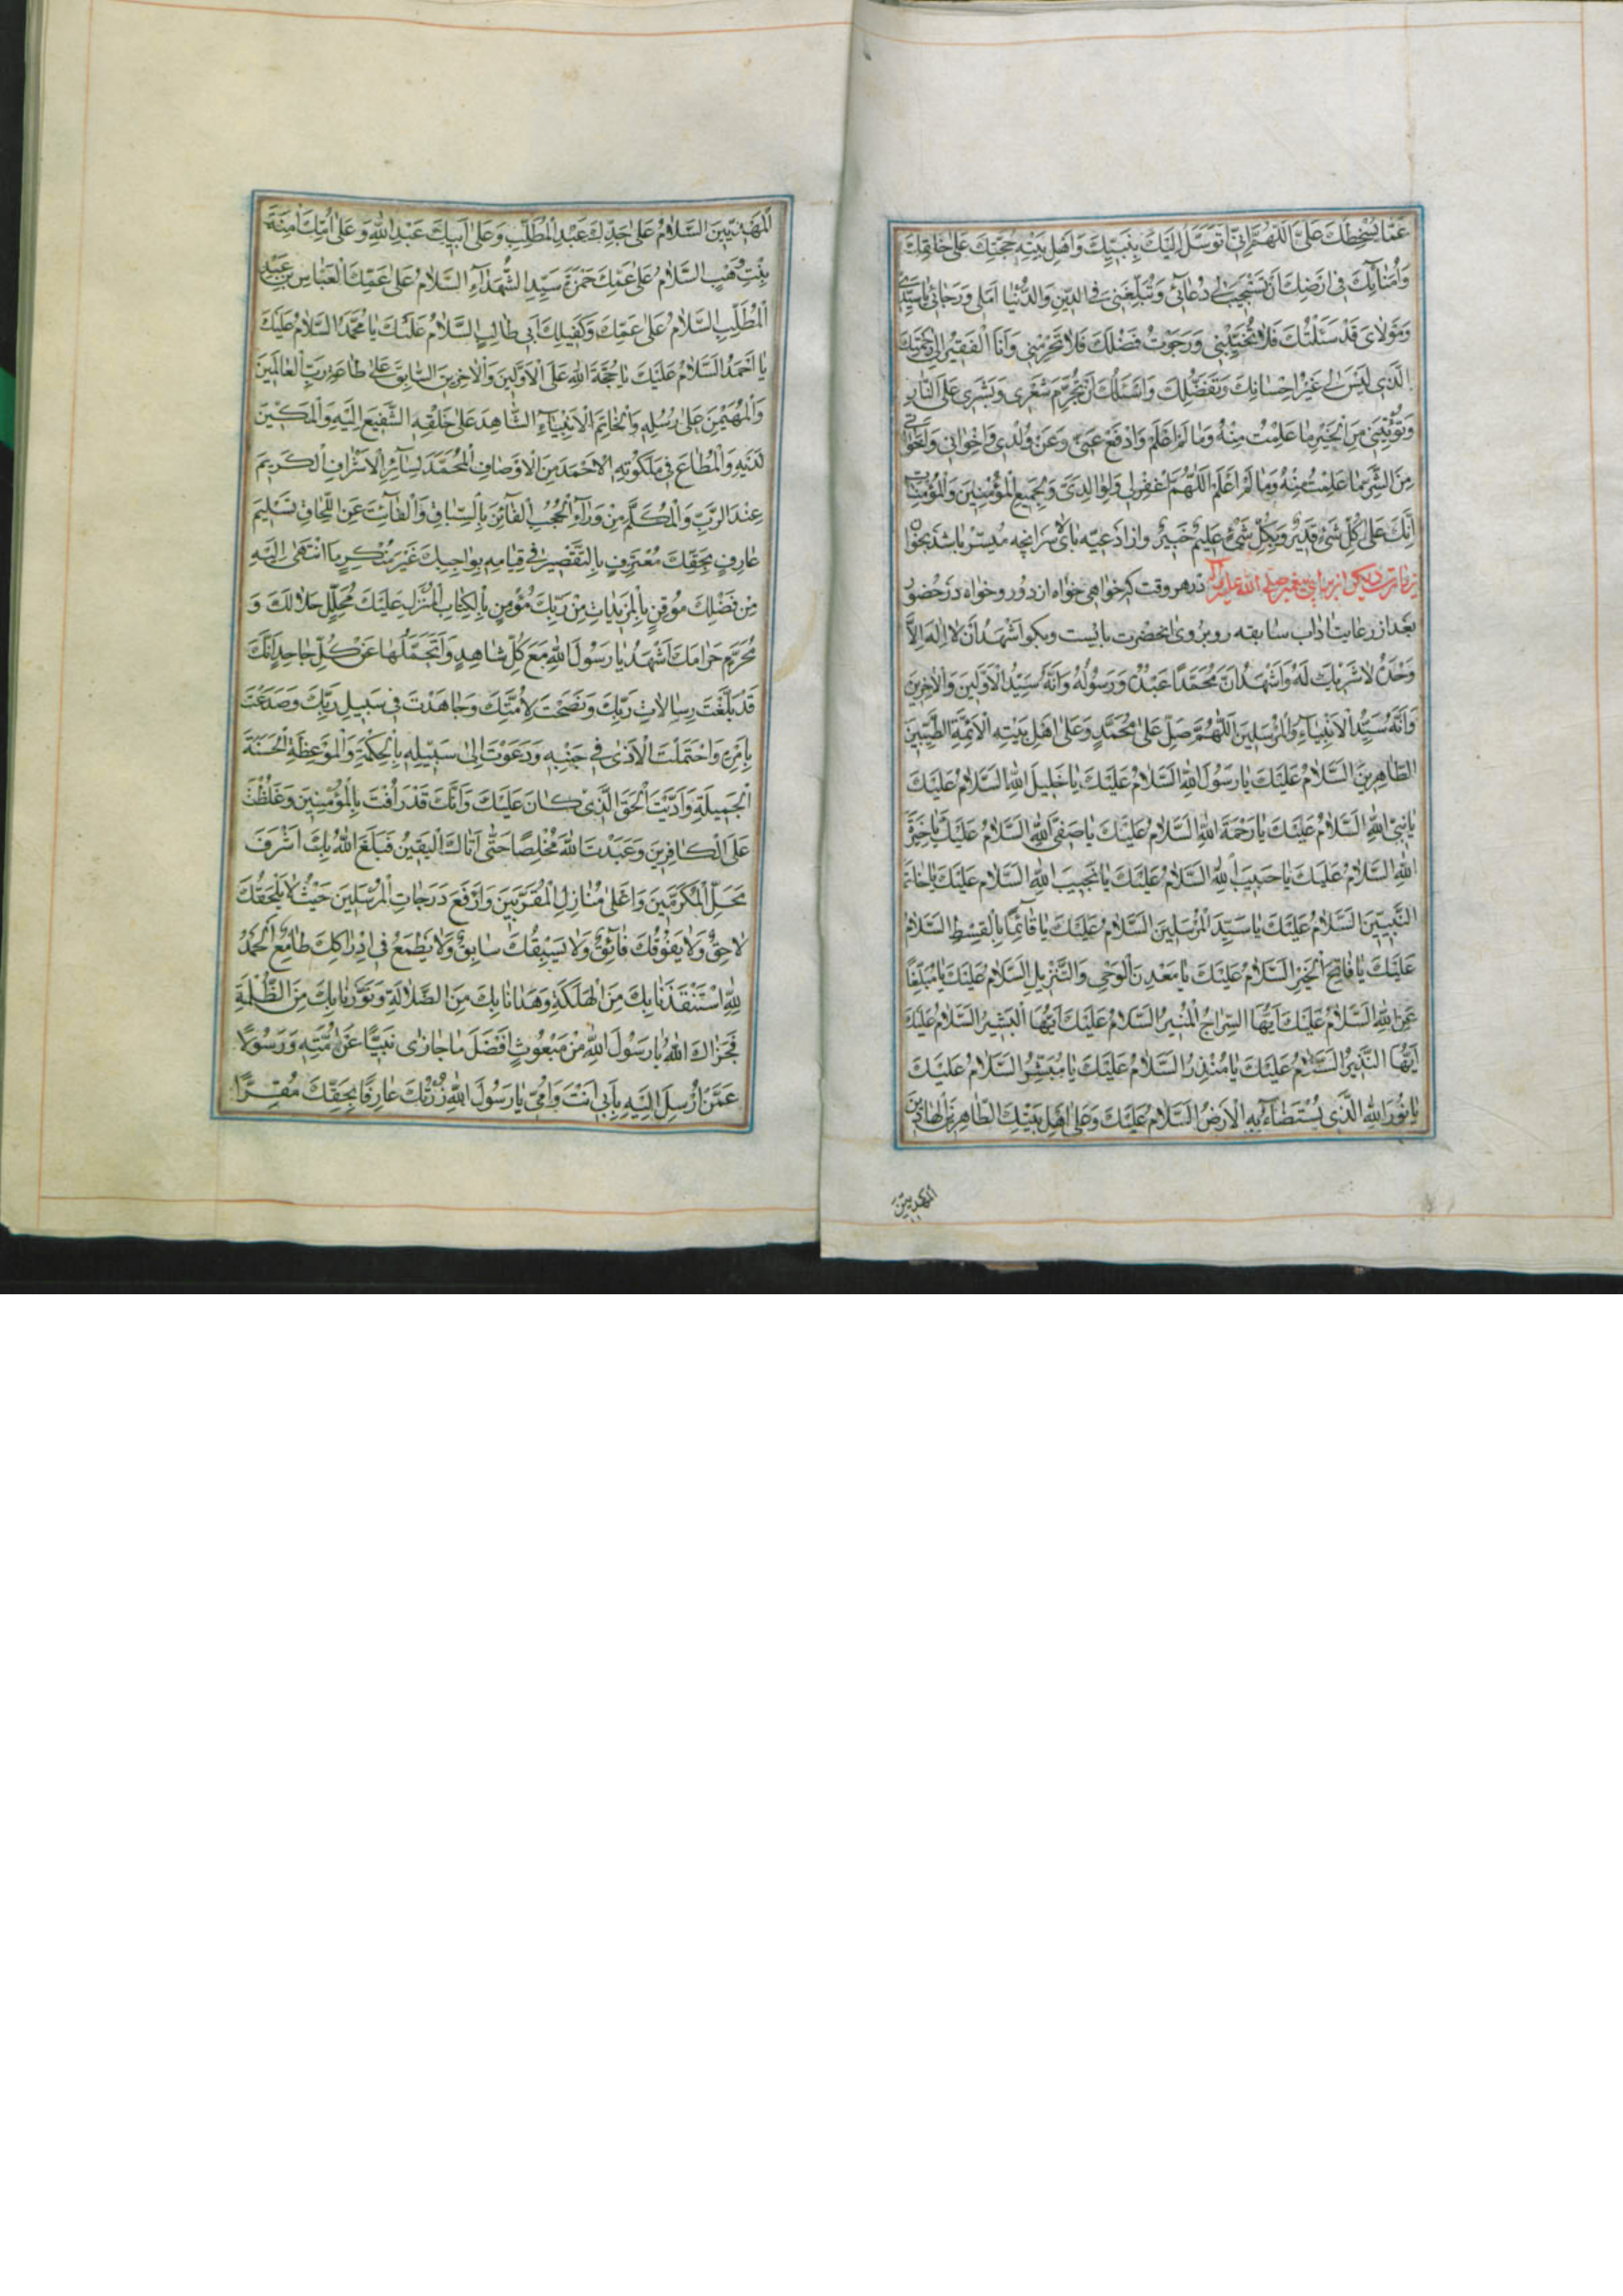 عَمَّا يُسْخِطُكَ عَلَىَّ اَللّٰهُمَّ اِنّى اَتَوَسَّلُ اِلَيْكَ بِنَبِيِّكَ وَاَهْلِ بَيْتِهِ حُجَّتِكَ عَلىٰ خَلْقِكَ
وَاُمَنٰائِكَ فى اَرْضِكَ اَنْ تَسْتَجيبَ لى دُعٰائى وَتُبَلِّغَنى فِى الدّينِ وَالدُّنْيٰا اَمَلى وَرَجٰائى يٰا سَيِّدى
وَمَوْلاىَ قَدْ سَئَلْتُكَ فَلاٰ تُخَيِّبْنى وَرَجَوْتُ فَضْلَكَ فَلاٰ تَحْرِمْنى وَاَنَا الْفَقيرُ اِلىٰ رَحْمَتِكَ
الَّذى لَيْسَ لى غَيْرُ اِحْسٰانِكَ وَتَفَضُّلِكَ وَاَسْئَلُكَ اَنْ تُحَرِّمَ شَعْرى وَبَشَرى عَلَى النّٰارِ
وَتُؤْتِيَنى مِنَ الْخَيْرِ مٰا عَلِمْتُ مِنْهُ وَمٰا لَمْ اَعْلَمْ وَادْفَعْ عَنّى وَعَنْ وُلْدى وَاِخْوٰانى وَاَخَوٰاتى
مِنَ الشَّرِّ مٰا عَلِمْتُ مِنْهُ وَمٰا لَمْ اَعْلَمْ اَللّٰهُمَّ اغْفِرْ لى وَلِوٰالِدَىَّ وَلِجَميعِ الْمُؤْمِنينَ وَالْمُؤْمِنٰاتِ
اِنَّكَ عَلىٰ كُلِّ شَىْءٍ قَديرٌ وَبِكُلِّ شَىْءٍ عَليمٌ خَبيرٌ واز ادعيه بالاى سر انچه ميسر باشد بخوان
زيارت ديكر از براى پيغمبر صلى الله عليه وآله در هر وقت كه خواهى خواه از دور و خواه در حضور
بعد از رعايت اداب سابقه رو بروى انحضرت بايست وبكو اَشْهَدُ اَنْ لاٰ اِلٰهَ اِلاَّ
وَحْدَهُ لاٰ شَريكَ لَهُ وَاَشْهَدُ اَنَّ مُحَمَّدًا عَبْدُهُ وَرَسُولُهُ وَاَنَّهُ سَيِّدُ الْاَوَّلينَ وَالْاٰخِرينَ
وَاَنَّهُ سَيِّدُ الْاَنْبِيٰاءِ وَالْمُرْسَلينَ اَللّٰهُمَّ صَلِّ عَلىٰ مُحَمَّدٍ وَعَلىٰ اَهْلِ بَيْتِهِ الْاَئِمَّةِ الطَّيِّبينَ
الطّٰاهِرينَ اَلسَّلاٰمُ عَلَيْكَ يٰا رَسُولَ اللّٰهِ اَلسَّلاٰمُ عَلَيْكَ يٰا خَليلَ اللّٰهِ اَلسَّلاٰمُ عَلَيْكَ
يٰا نَبِىَّ اللّٰهِ اَلسَّلاٰمُ عَلَيْكَ يٰا رَحْمَةَ اللّٰهِ اَلسَّلاٰمُ عَلَيْكَ يٰا صَفِىَّ اللّٰهِ اَلسَّلاٰمُ عَلَيْكَ يٰا خِيَرَةَ
اللّٰهِ اَلسَّلاٰمُ عَلَيْكَ يٰا حَبيبَ اللّٰهِ اَلسَّلاٰمُ عَلَيْكَ يٰا نَجيبَ اللّٰهِ اَلسَّلاٰمُ عَلَيْكَ يٰا خٰاتَمَ
النَّبِيّينَ اَلسَّلاٰمُ عَلَيْكَ يٰا سَيِّدَ الْمُرْسَلينَ اَلسَّلاٰمُ عَلَيْكَ يٰا قٰائِمًا بِالْقِسْطِ اَلسَّلاٰمُ
عَلَيْكَ يٰا فٰاتِحَ الْخَيْرِ اَلسَّلاٰمُ عَلَيْكَ يٰا مَعْدِنَ الْوَحْىِ وَالتَّنْزيلِ اَلسَّلاٰمُ عَلَيْكَ يٰا مُبَلِّغًا
عَنِ اللّٰهِ اَلسَّلاٰمُ عَلَيْكَ اَيُّهَا السِّرٰاجُ الْمُنيرُ اَلسَّلاٰمُ عَلَيْكَ اَيُّهَا الْبَشيرُ اَلسَّلاٰمُ عَلَيْكَ
اَيُّهَا النَّذيرُ اَلسَّلاٰمُ عَلَيْكَ يٰا مُنْذِرُ اَلسَّلاٰمُ عَلَيْكَ يٰا مُبَشِّرُ اَلسَّلاٰمُ عَلَيْكَ
يٰا نُورَ اللّٰهِ الَّذى يُسْتَضٰاءُ بِهِ الْاَرْضُ اَلسَّلاٰمُ عَلَيْكَ وَعَلىٰ اَهْلِ بَيْتِكَ الطّٰاهِرينَ الْهٰادينَ
المهديين
الْمَهْدِيّينَ اَلسَّلاٰمُ عَلىٰ جَدِّكَ عَبْدِ الْمُطَّلِبِ وَعَلىٰ اَبيكَ عَبْدِ اللّٰهِ وَعَلىٰ اُمِّكَ اٰمِنَةَ
بِنْتِ وَهْبٍ اَلسَّلاٰمُ عَلىٰ عَمِّكَ حَمْزَةَ سَيِّدِ الشُّهَدٰاءِ اَلسَّلاٰمُ عَلىٰ عَمِّكَ الْعَبّٰاسِ بْنِ عَبْدِ
الْمُطَّلِبِ اَلسَّلاٰمُ عَلىٰ عَمِّكَ وَكَفيلِكَ اَبى طٰالِبٍ اَلسَّلاٰمُ عَلَيْكَ يٰا مُحَمَّدُ اَلسَّلاٰمُ عَلَيْكَ
يٰا اَحْمَدُ اَلسَّلاٰمُ عَلَيْكَ يٰا حُجَّةَ اللّٰهِ عَلَى الْاَوَّلينَ وَالْاٰخِرينَ السّٰابِقَ عَلىٰ طٰاعَةِ رَبِّ الْعٰالَمينَ
وَالْمُهَيْمِنَ عَلىٰ رُسُلِهِ وَالْخٰاتِمَ الْاَنْبِيٰاءِ الشّٰاهِدَ عَلىٰ خَلْقِهِ الشَّفيعَ اِلَيْهِ وَالْمَكينَ
لَدَيْهِ وَالْمُطٰاعَ فى مَلَكُوتِهِ الْاَحْمَدَ مِنَ الْاَوْصٰافِ الْمُحَمَّدَ لِسٰائِرِ الْاَشْرٰافِ الْكَريمَ
عِنْدَ الرَّبِّ وَالْمُكَلَّمَ مِنْ وَرٰاءِ الْحُجُبِ الْفٰائِزَ بِالسِّبٰاقِ وَالْفٰائِتَ عَنِ اللِّحٰاقِ تَسْليمَ
عٰارِفٍ بِحَقِّكَ مُعْتَرِفٍ بِالتَّقْصيرِ فى قِيٰامِهِ بِوٰاجِبِكَ غَيْرِ مُنْكِرٍ مَا انْتَهىٰ اِلَيْهِ
مِنْ فَضْلِكَ مُوقِنٍ بِالْمَزيدٰاتِ مِنْ رَبِّكَ مُؤْمِنٍ بِالْكِتٰابِ الْمُنْزَلِ عَلَيْكَ مُحَلِّلٍ حَلاٰلَكَ وَ
مُحَرِّمٍ حَرٰامَكَ اَشْهَدُ يٰا رَسُولَ اللّٰهِ مَعَ كُلِّ شٰاهِدٍ وَاَتَحَمَّلُهٰا عَنْ كُلِّ جٰاحِدٍ اَنَّكَ
قَدْ بَلَّغْتَ رِسٰالاٰتِ رَبِّكَ وَنَصَحْتَ لِاُمَّتِكَ وَجٰاهَدْتَ فى سَبيلِ رَبِّكَ وَصَدَعْتَ
بِاَمْرِهِ وَاحْتَمَلْتَ الْاَذىٰ فى جَنْبِهِ وَدَعَوْتَ اِلىٰ سَبيلِهِ بِالْحِكْمَةِ وَالْمَوْعِظَةِ الْحَسَنَةِ
الْجَميلَةِ وَاَدَّيْتَ الْحَقَّ الَّذى كٰانَ عَلَيْكَ وَاَنَّكَ قَدْ رَاُفْتَ بِالْمُؤْمِنينَ وَغَلُظْتَ
عَلَى الْكٰافِرينَ وَعَبَدْتَ اللّٰهَ مُخْلِصًا حَتّىٰ اَتٰاكَ الْيَقينُ فَبَلَغَ اللّٰهُ بِكَ اَشْرَفَ
مَحَلِّ الْمُكَرَّمينَ وَاَعْلىٰ مَنٰازِلِ الْمُقَرَّبينَ وَاَرْفَعَ دَرَجٰاتِ الْمُرْسَلينَ حَيْثُ لاٰ يَلْحَقُكَ
لاٰحِقٌ وَلاٰ يَفُوقُكَ فٰائِقٌ وَلاٰ يَسْبِقُكَ سٰابِقٌ وَلاٰ يَطْمَعُ فى اِدْرٰاكِكَ طٰامِعٌ اَلْحَمْدُ
لِلّٰهِ اسْتَنْقَذَنٰا بِكَ مِنَ الْهَلَكَةِ وَهَدٰانٰا بِكَ مِنَ الضَّلاٰلَةِ وَنَوَّرَنٰا بِكَ مِنَ الظُّلْمَةِ
فَجَزٰاكَ اللّٰهُ يٰا رَسُولَ اللّٰهِ مِنْ مَبْعُوثٍ اَفْضَلَ مٰا جٰازىٰ نَبِيًّا عَنْ اُمَّتِهِ وَرَسُولًا
عَمَّنْ اُرْسِلَ اِلَيْهِ بِاَبى اَنْتَ وَاُمّى يٰا رَسُولَ اللّٰهِ زُرْتُكَ عٰارِفًا بِحَقِّكَ مُقِرًّا